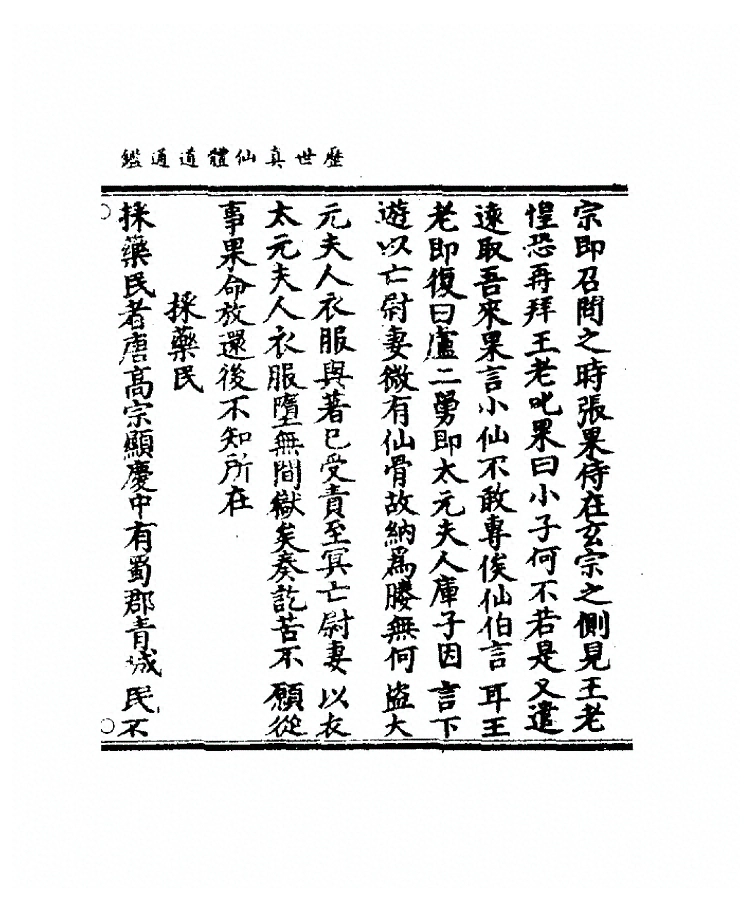 歷世真仙體道通鑑
宗即召問之時張果侍在玄宗之側見王老
惶恐再拜王老叱果曰小子何不若是又遣
遠取吾來果言小仙不敢專俟仙伯言耳王
老即復曰盧二舅即太元夫人庫子因言下
遊以亡尉妻微有仙骨故納為媵無何盜大
元夫人衣服與著已受責至冥亡尉妻以衣
太元夫人衣服墮無間獄矣奏訖苦不願從
事果命放還後不知所在
採藥民
採藥民者唐高宗顯慶中有蜀郡青城民不